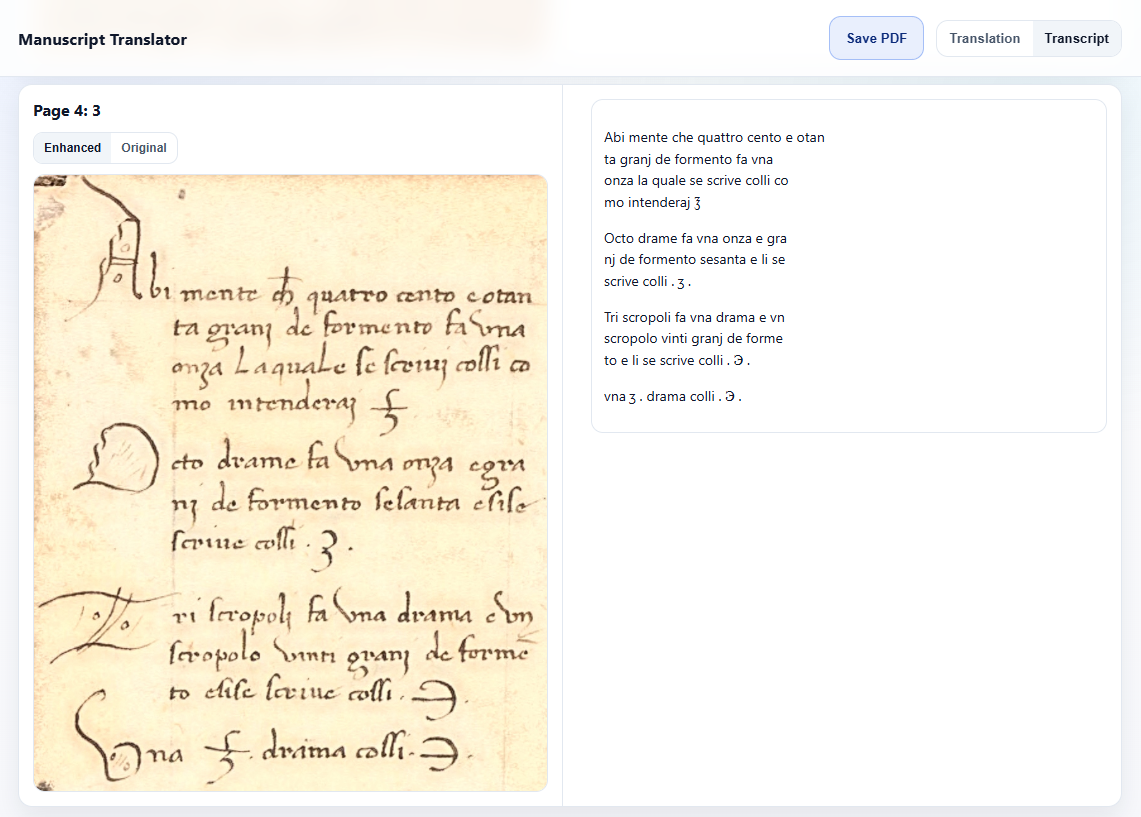 Manuscript Translator
Save PDF
Translation
Transcript
Page 4: 3
Enhanced
Original
Abi mente ch quatro cento e otan
ta granj de formento fa vna
onza La quale se scriuj cossi co
mo intenderaj ℥
Octo drame fa vna onza e gra
nj de formento sesanta e sise
scriue cossi . ʒ .
Tri scropolj fa vna drama e vn
scropolo vinti granj de forme
to e sise scriue cossi . ℈ .
Vna ℥ . drama cossi . ℈ .
Abi mente che quattro cento e otan
ta granj de formento fa vna
onza la quale se scrive colli co
mo intenderaj ℥
Octo drame fa vna onza e gra
nj de formento sesanta e li se
scrive colli . ʒ .
Tri scropoli fa vna drama e vn
scropolo vinti granj de forme
to e li se scrive colli . ℈ .
vna ʒ . drama colli . ℈ .